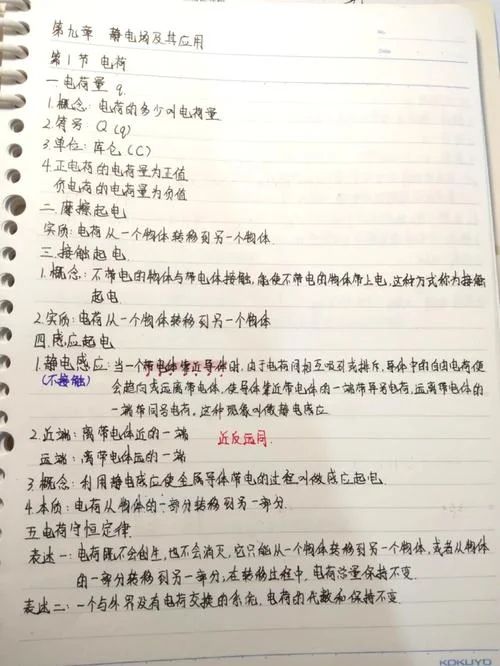 第九章 静电场及其应用
第1节 电荷
一.电荷量 q.
1.概念: 电荷的多少叫电荷量
2.符号: Q (q)
3.单位: 库仑 (C)
4.正电荷的电荷量为正值
负电荷的电荷量为负值
二.摩擦起电
实质: 电荷从一个物体转移到另一个物体.
三.接触起电
1.概念: 不带电的物体与带电体接触, 能使不带电的物体带上电, 这种方式称为接触
起电
2.实质: 电荷从一个物体转移到另一个物体
四.感应起电
1.静电感应: 当一个带电体靠近导体时, 由于电荷间相互吸引或排斥, 导体中的自由电荷便
(不接触) 会趋向或远离带电体, 使导体靠近带电体的一端带异号电荷, 远离带电体的
一端带同号电荷, 这种现象叫做静电感应
2.近端: 离带电体近的一端 近反远同.
远端: 离带电体远的一端
3.概念: 利用静电感应使金属导体带电的过程叫做感应起电.
4.本质: 电荷从物体的一部分转移到另一部分.
五.电荷守恒定律.
表述一: 电荷既不会创生, 也不会消灭, 它只能从一个物体转移到另一个物体, 或者从物体
的一部分转移到另一部分, 在转移过程中, 电荷总量保持不变.
表述二: 一个与外界没有电荷交换的系统, 电荷的代数和保持不变.
KOKUYO